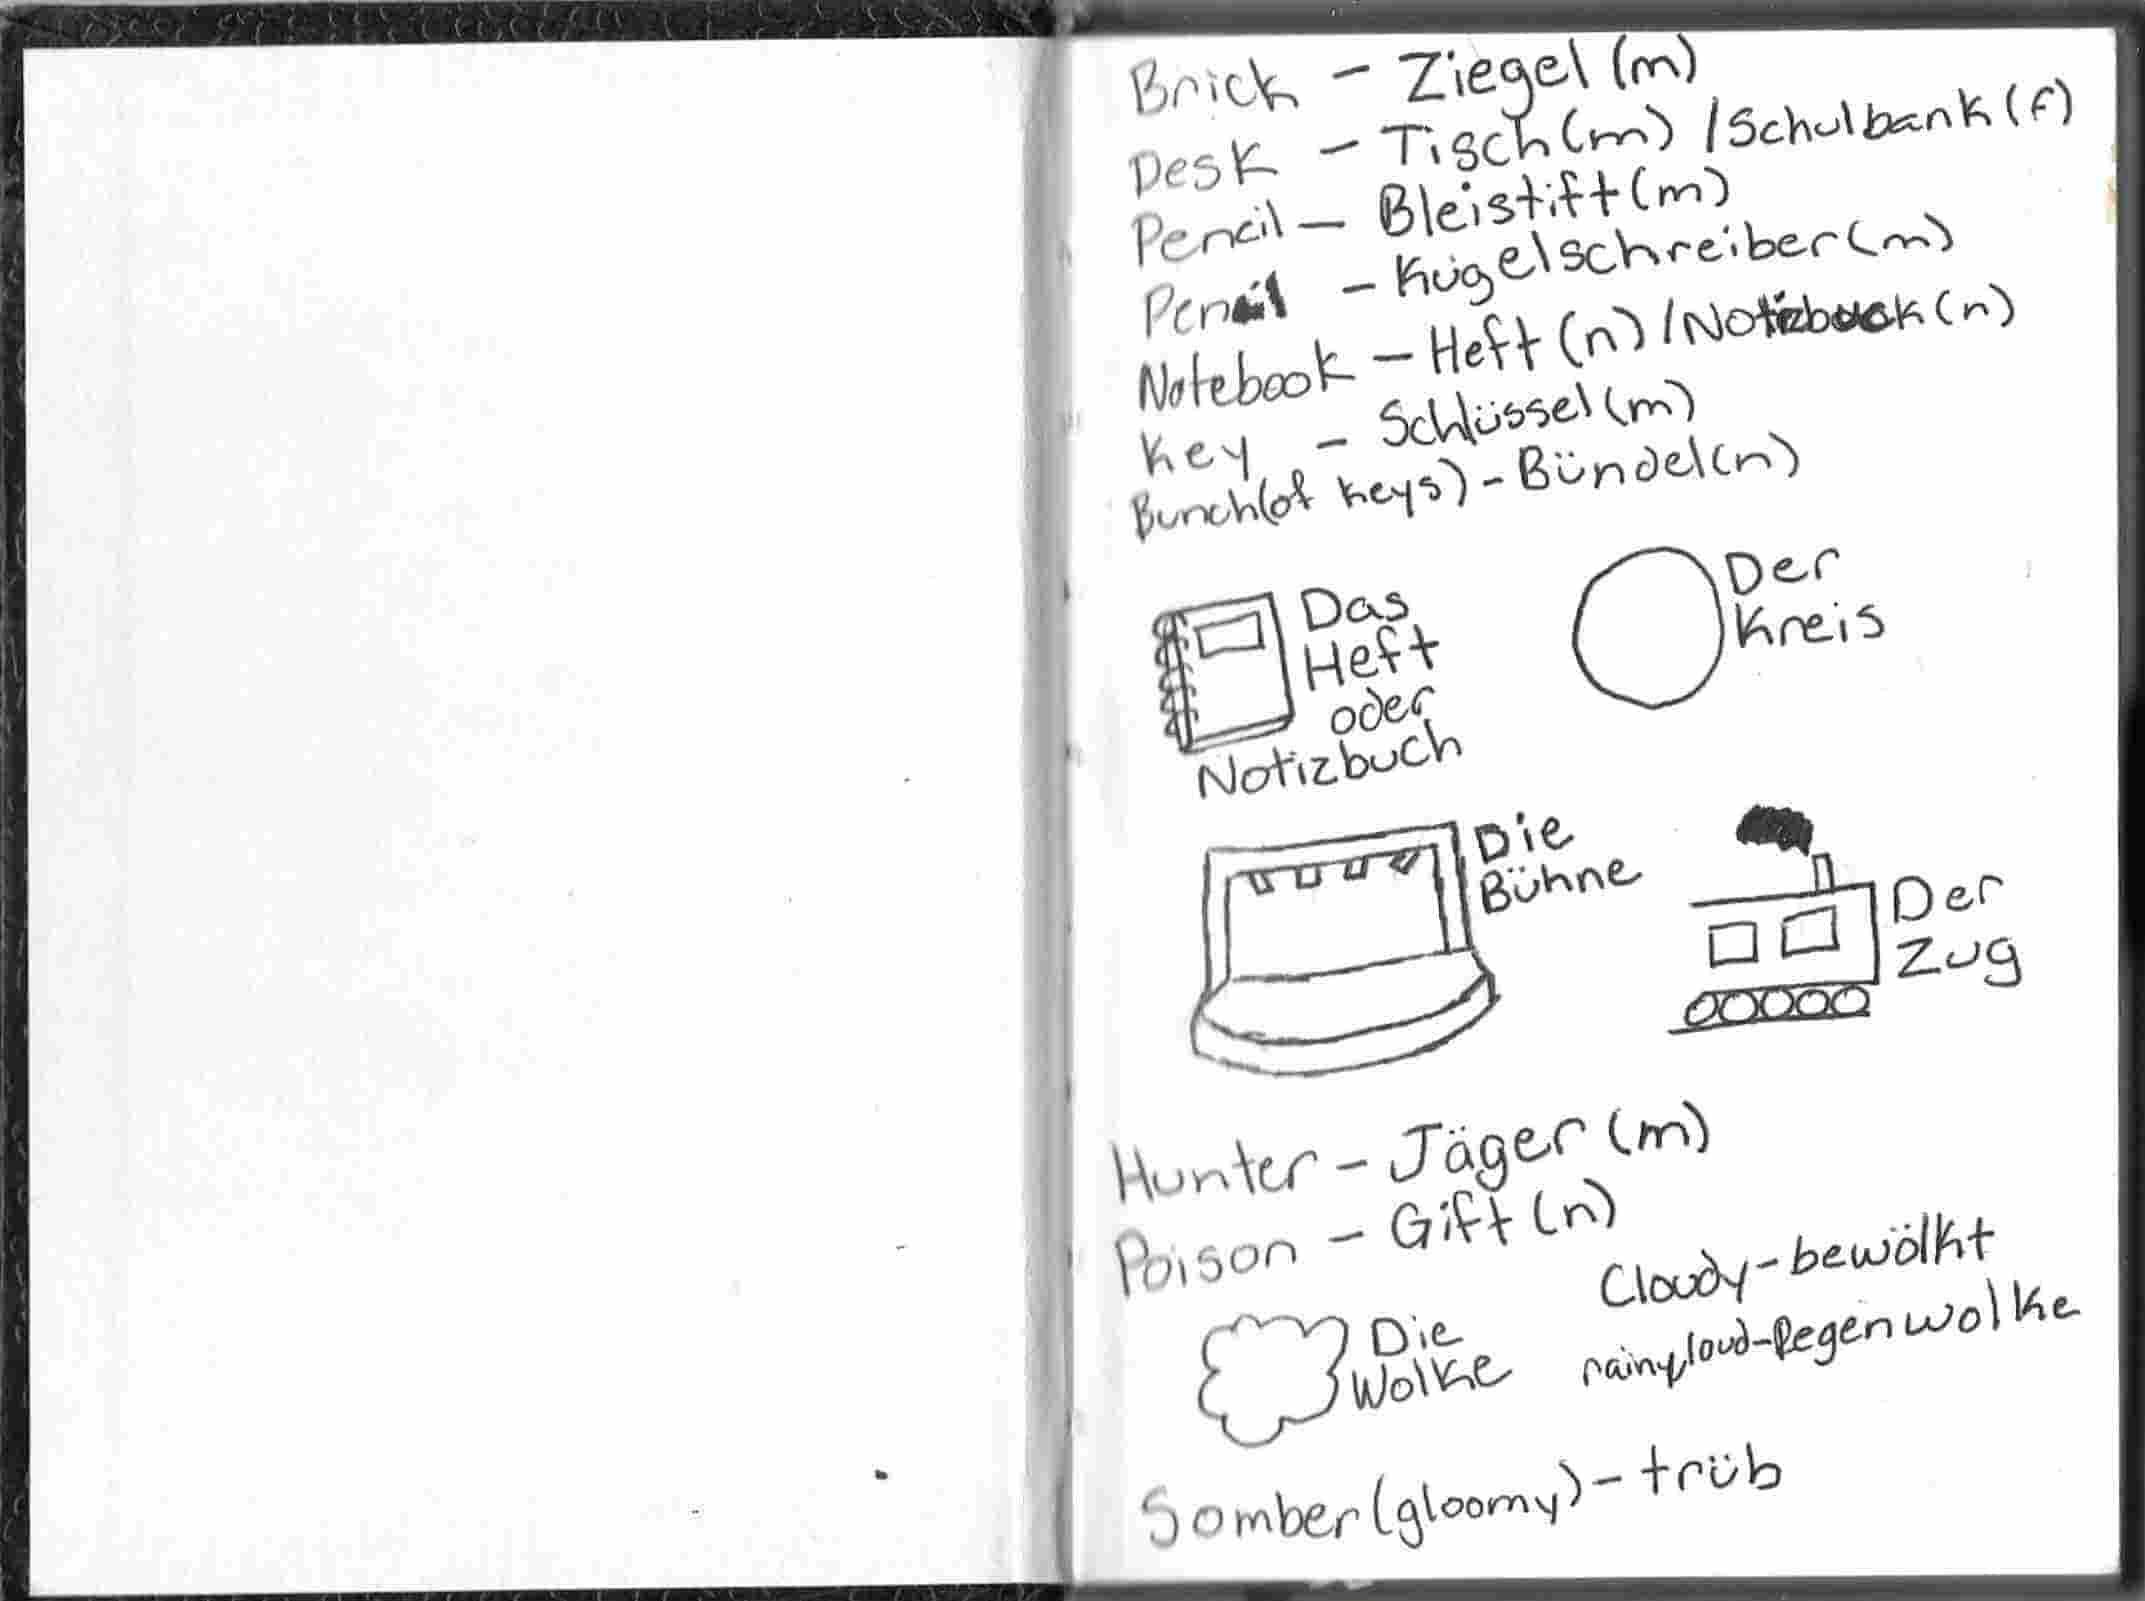 Brick - Ziegel (m)
Desk - Tisch (m) / Schulbank (f)
Pencil - Bleistift (m)
Pen - Kugelschreiber (m)
Notebook - Heft (n) / Notizbuck (n)
Key - Schlüssel (m)
Bunch (of keys) - Bündel (n)
Das
Heft
oder
Notizbuch
Der
Kreis
Die
Bühne
Der
Zug
Hunter - Jäger (m)
Poison - Gift (n)
Cloudy - bewölkt
rainycloud - Regenwolke
Die
Wolke
Somber (gloomy) - trüb